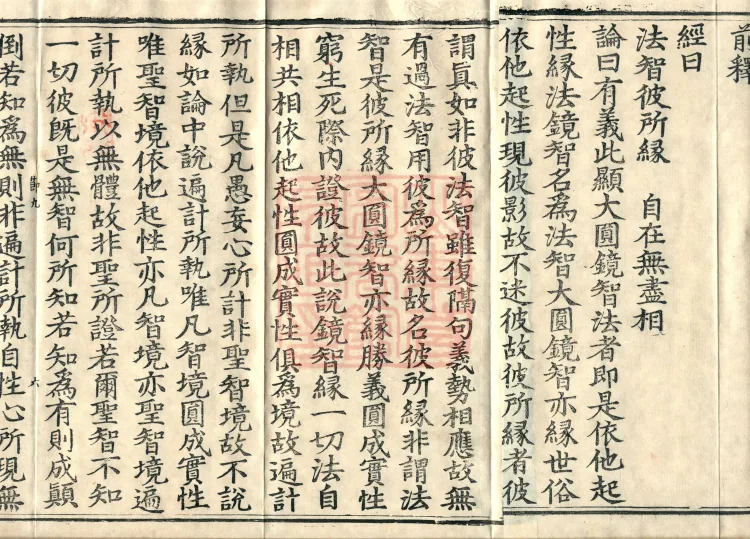 前釋
經曰
法智彼所緣　自在無盡相
論曰有義此顯大圓鏡智法者即是依他起
性緣法鏡智名爲法智大圓鏡智亦緣世俗
依他起性現彼影故不迷彼故彼所緣者彼
謂眞如非彼法智雖復隔句義勢相應故無
有過法智用彼爲所緣故名彼所緣非謂法
智是彼所緣大圓鏡智亦緣勝義圓成實性
窮生死際內證彼故此說鏡智緣一切法自
相共相依他起性圓成實性俱爲境故遍計
所執但是凡愚妄心所計非聖智境故不說
緣如論中說遍計所執唯凡智境圓成實性
唯聖智境依他起性亦凡智境亦聖智境遍
計所執以無體故非聖所證若爾聖智不知
一切彼旣是無智何所知若知爲有則成顚
第九　六
倒若知爲無則非遍計所執自性心所現無